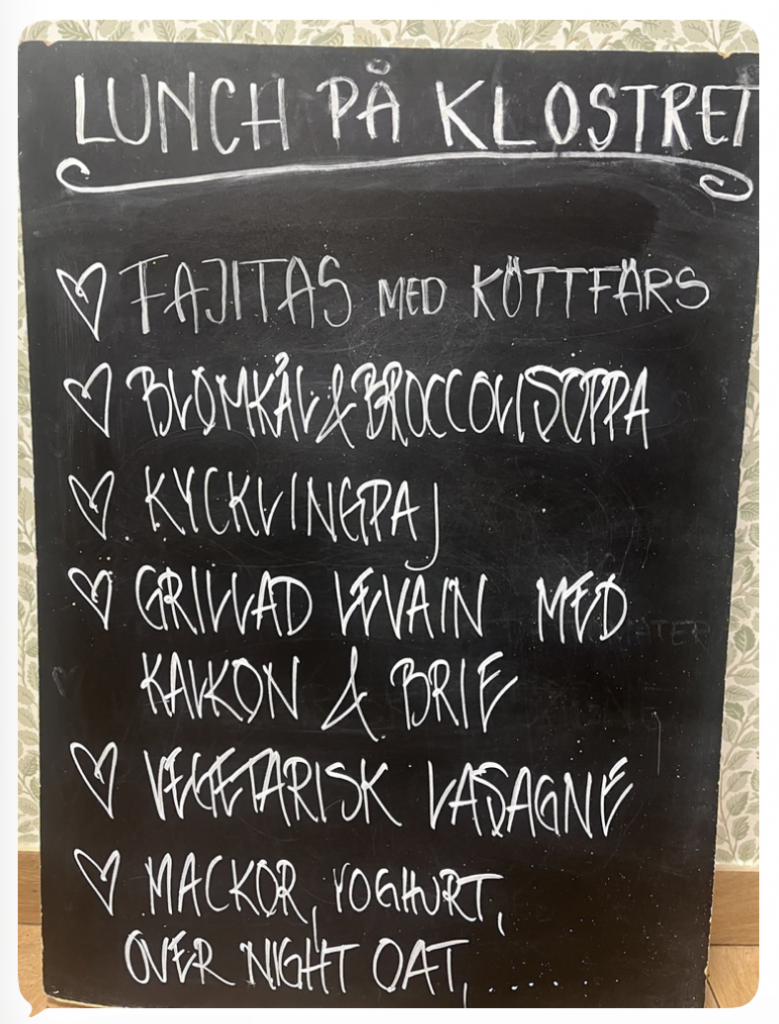 LUNCH PÅ KLOSTRET
FAJITAS MED KÖTTFÄRS
BLOMKÅL & BROCCOLISOPPA
KYCKLINGPAJ
GRILLAD LEVAIN MED
KALKON & BRIE
VEGETARISK LASAGNE
MACKOR, YOGHURT,
OVER NIGHT OAT, .....